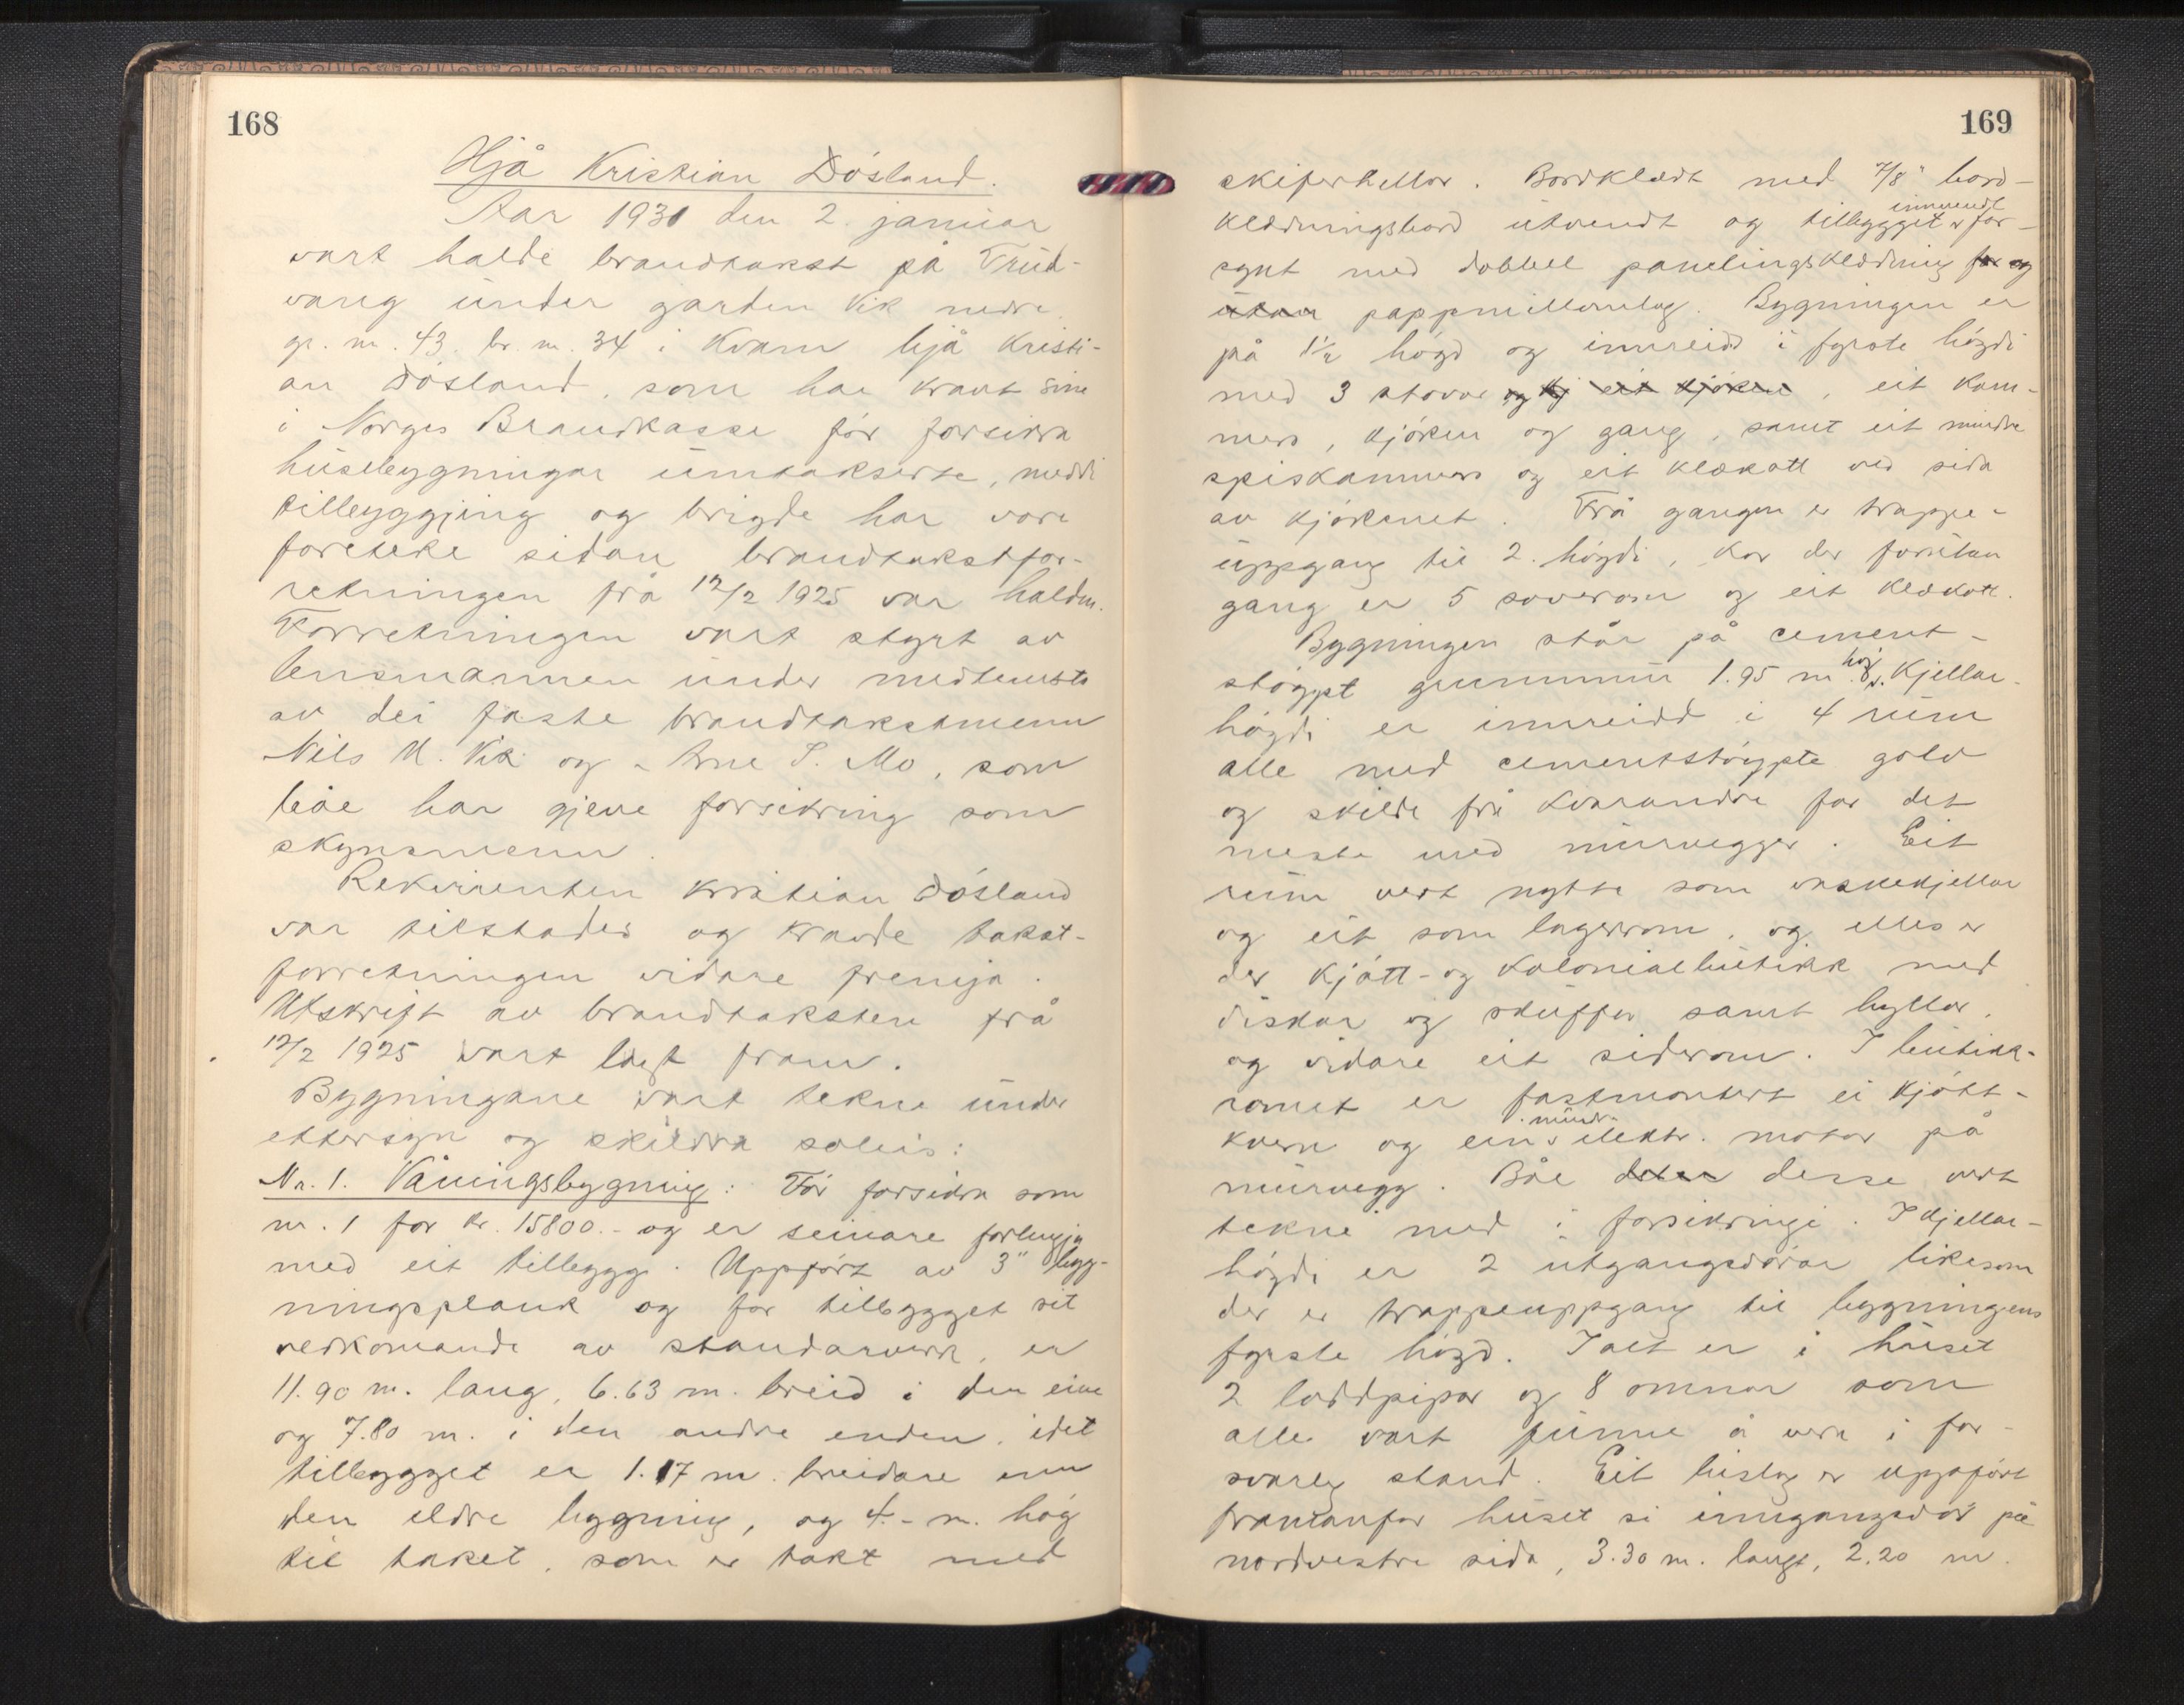 168
Hjå Kristian Dösland.
Aar 1931 den 2. januar
vart halde brandtakst på Trud-
vang under garden Vik nedre
gr. nr. 43. br. nr. 34 i Kvam hjå Kristi-
an Dösland, som har kravt sine
i Norges Brandkasse för forsikra
husebygningar umtakserte, med di
tilbyggjing og brigde har vore
foreteke sidan brandtakstfor-
retningen frå 12/2 1925 var halden.
Forretningen vart styrt av
lensmannen under medtenesta
av dei faste brandtakstmenn
Nils M. Vik og Arne T. Mo, som
båe har gjeve forsikring som
skynsmenn.
Rekvirenten Kristian Dösland
var tilstades og kravde takst-
forretningen vidare fremja.
Utskrift av brandtaksten frå
12/2 1925 vart lagt fram.
Bygningane vart tekne under
ettersyn og skildra soleis:
Nr. 1. Våningsbygning: För forsikra som
nr. 1 for kr. 15800.- og er seinare forlengja
med eit tilbygg. Uppfört av 3" bygg-
ningsplank og for tilbygget sit
vedkomande av standarverk, er
11.90 m. lang, 6.63 m. breid i den eine
og 7.80 m. i den andre enden, idet
tilbygget er 1.17 m. breidare enn
den eldre bygning, og 4.- m. høg
til taket, som er takt med
169
skiferhellor. Bordklædt med 7/8" bord-
klædningsbord utvendt og tilbygget innvendt er for-
synt med dobbell panelingsklædning for og
utan pappmillomlag. Bygningen er
på 1½ högd og innreidd i fyrste högdi
med 3 stovor og kj eit kjöken, eit kam-
mers, kjöken og gang, samt eit mindre
spiskammers og eit klækott ved sida
av kjökenet. Frå gangen er trappe-
uppgang til 2. högdi, kor der forutan
gang er 5 soverom og eit klækott.
Bygningen står på cement-
stöypt grunnmur 1.95 m. høg. Kjellar-
högdi er innreidd i 4 rum
alle med cementstöypte golv
og skilde frå kvarandre for det
meste med murvegger. Eit
rum vert nytta som vaskekjellar
og eit som lagerrom, og elles er
der kjött- og kolonialbutikk med
diskar og skuffer samt hyllor,
og vidare eit siderom. I butikk-
romet er fastmontert ei kjött-
kvern og ein mindre elektr. motor på
murvegg. Båe deler desse vert
tekne med i forsikringi. I kjellar-
högdi er 2 utgangsdörar likesom
der er trappeuppgang til bygningens
fyrste högd. Ialt er i huset
2 loddpipor og 8 omnar som
alle vart funne å vera i for-
svarleg stand. Eit bislag er uppfört
framanfor huset si inngangsdör på
nordvestre sida, 3.30 m. langt, 2.20 m.